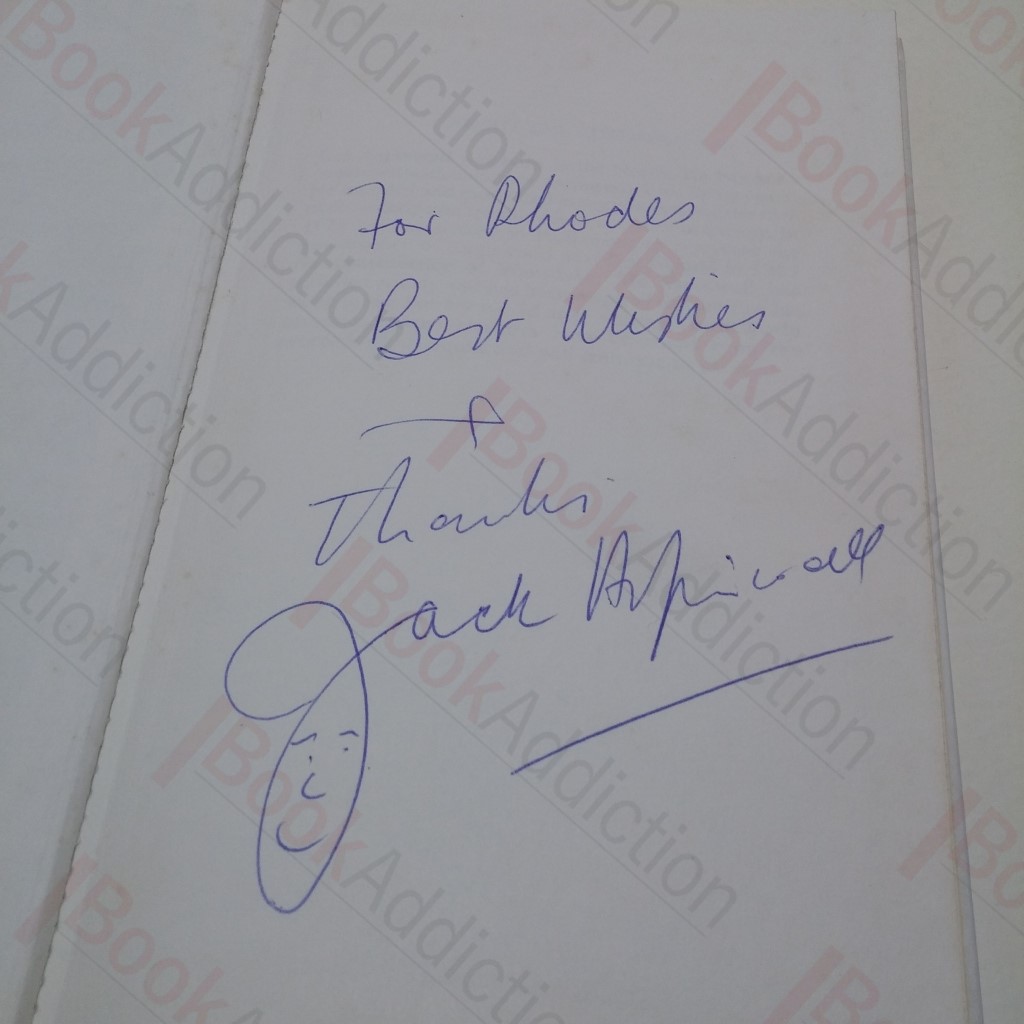 For Rhodes
Best Wishes
&
Thanks
Jack Aspinwall
BookAddiction
BookAddiction
BookAddiction
BookAddiction
BookAddiction
BookAddiction
BookAddiction